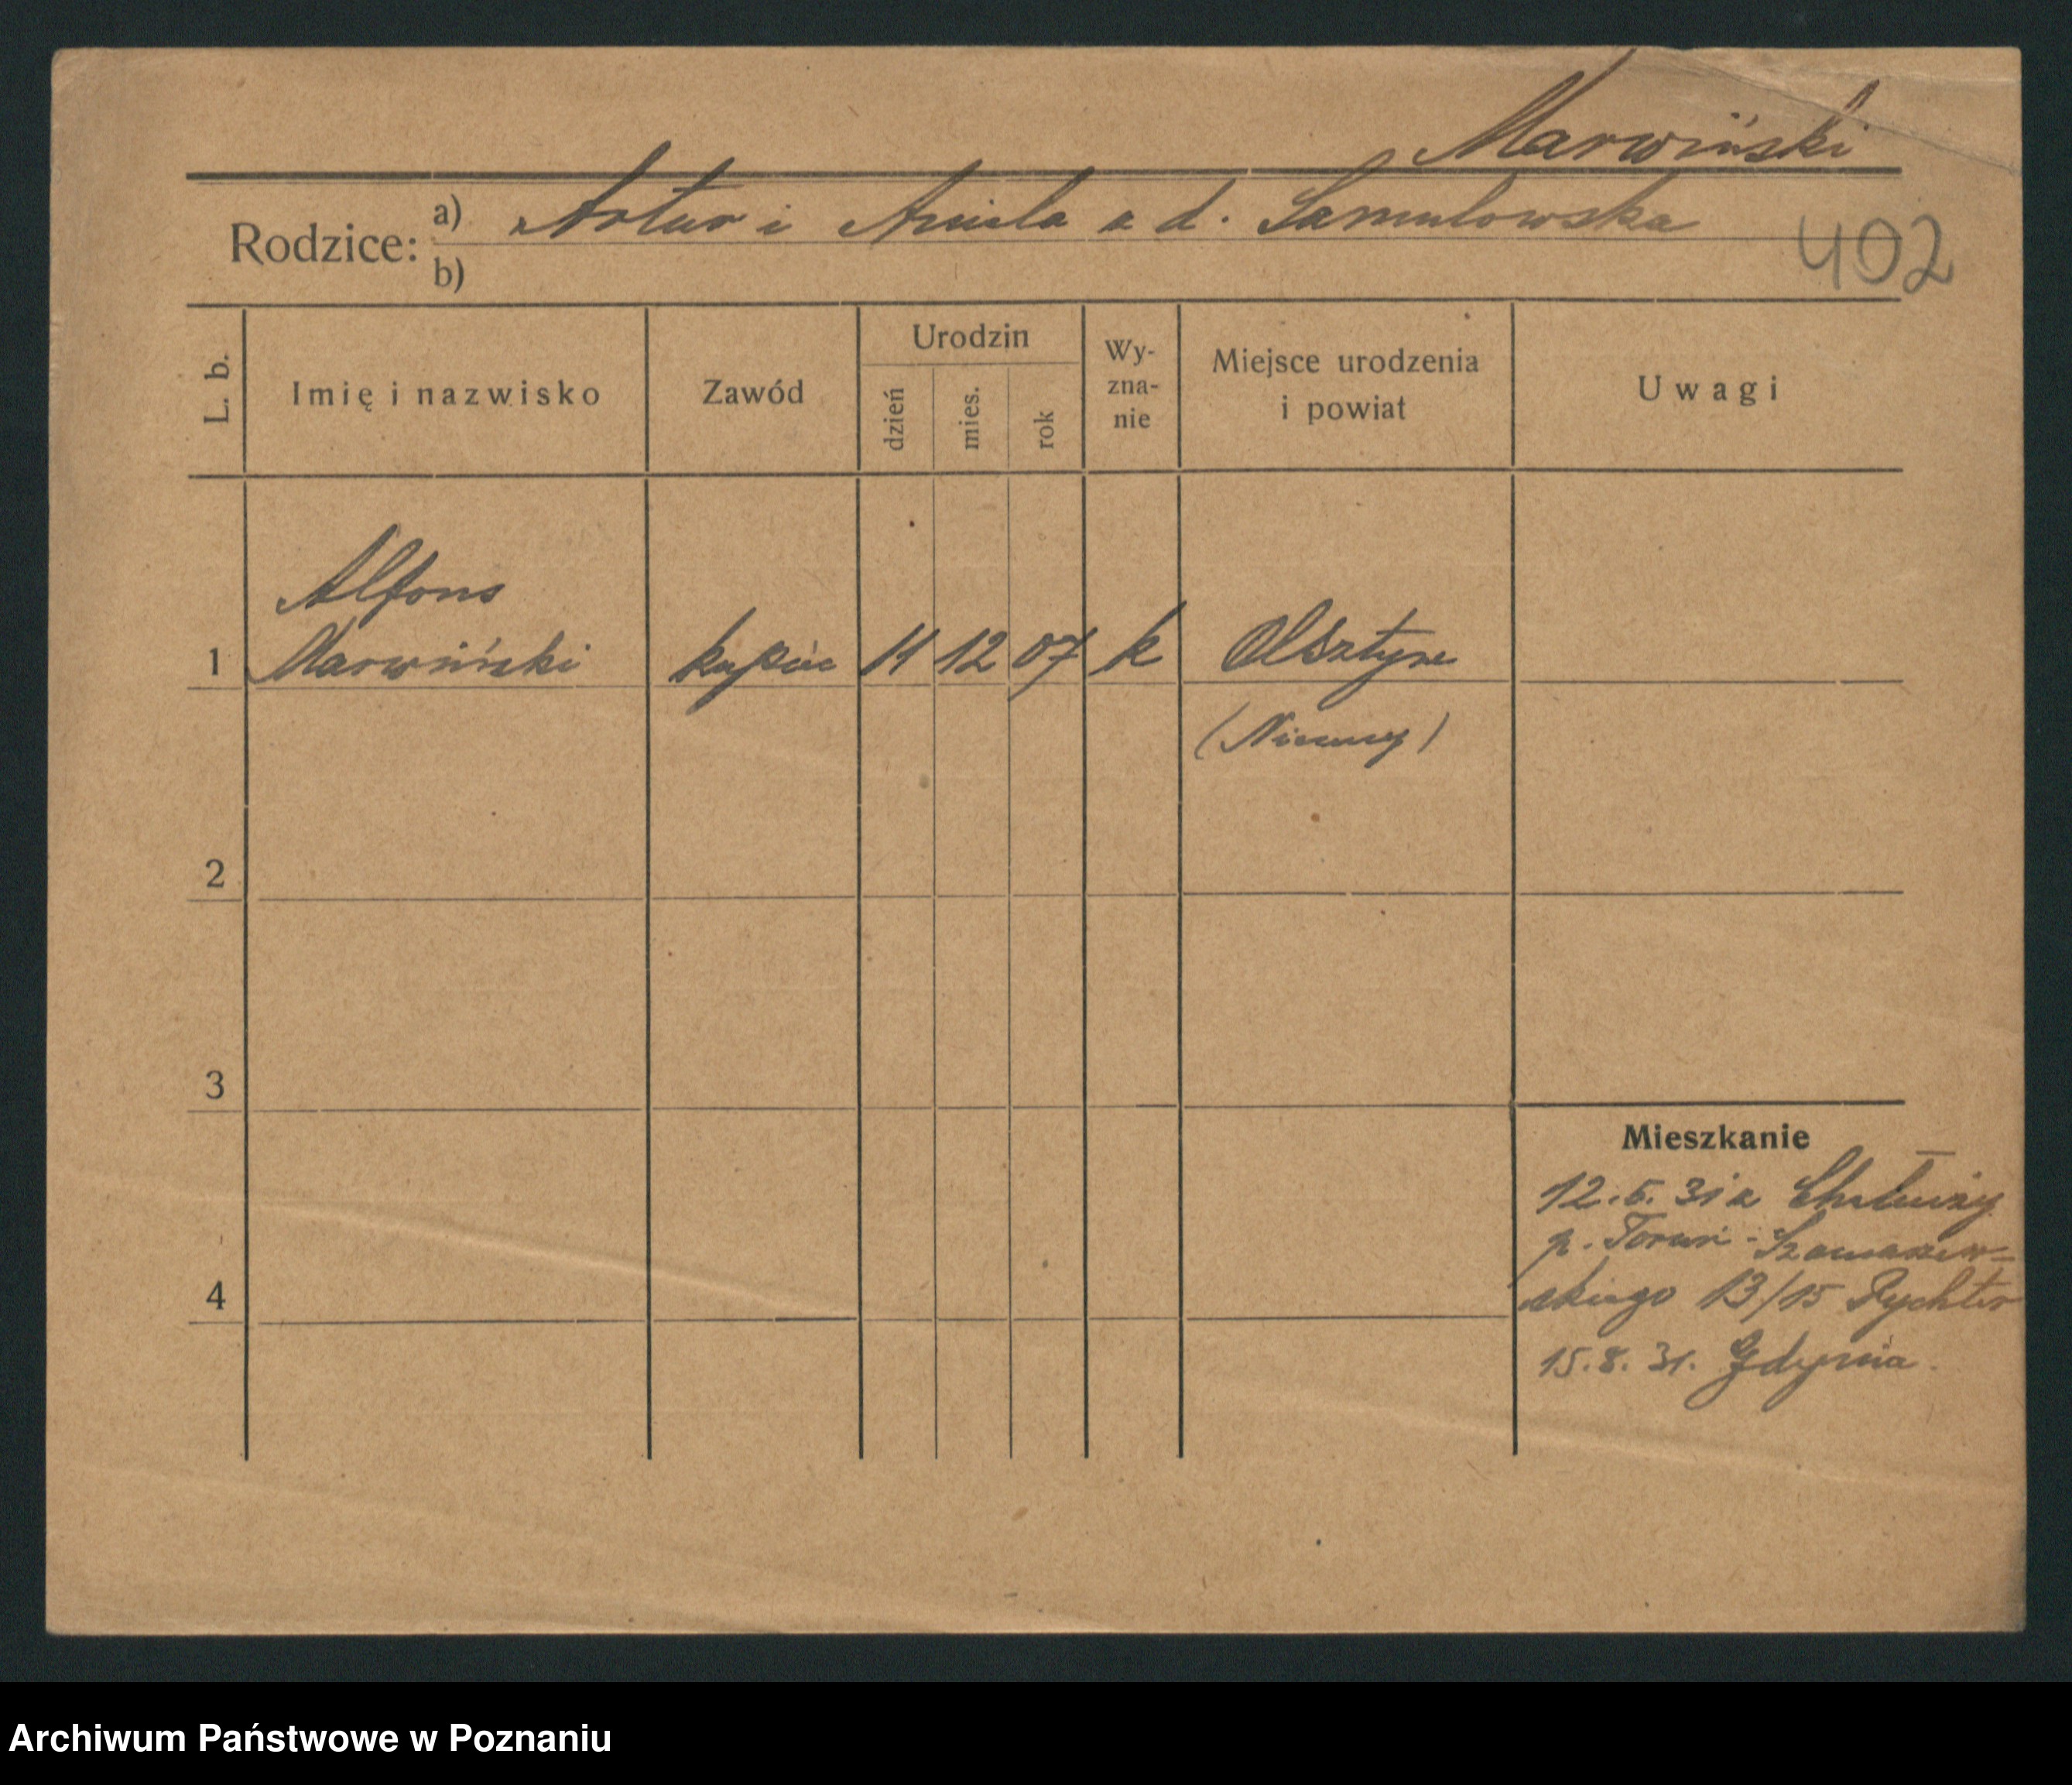 Marwiński
Rodzice: a) Artur i Aniela a d. Samulowska
b)
402
L. b. Imię i nazwisko Zawód Urodzin dzień mies. rok Wy-zna-nie Miejsce urodzenia i powiat Uwagi
Alfons
1 Marwiński kupiec 11 12 07 k Olsztyn
(Niemcy)
2
3
Mieszkanie
12.5.31 z Chełmży
p. Toruń - Szamarzew-
4 skiego 13/15 Rychter
15.8.31. Gdynia.
Archiwum Państwowe w Poznaniu